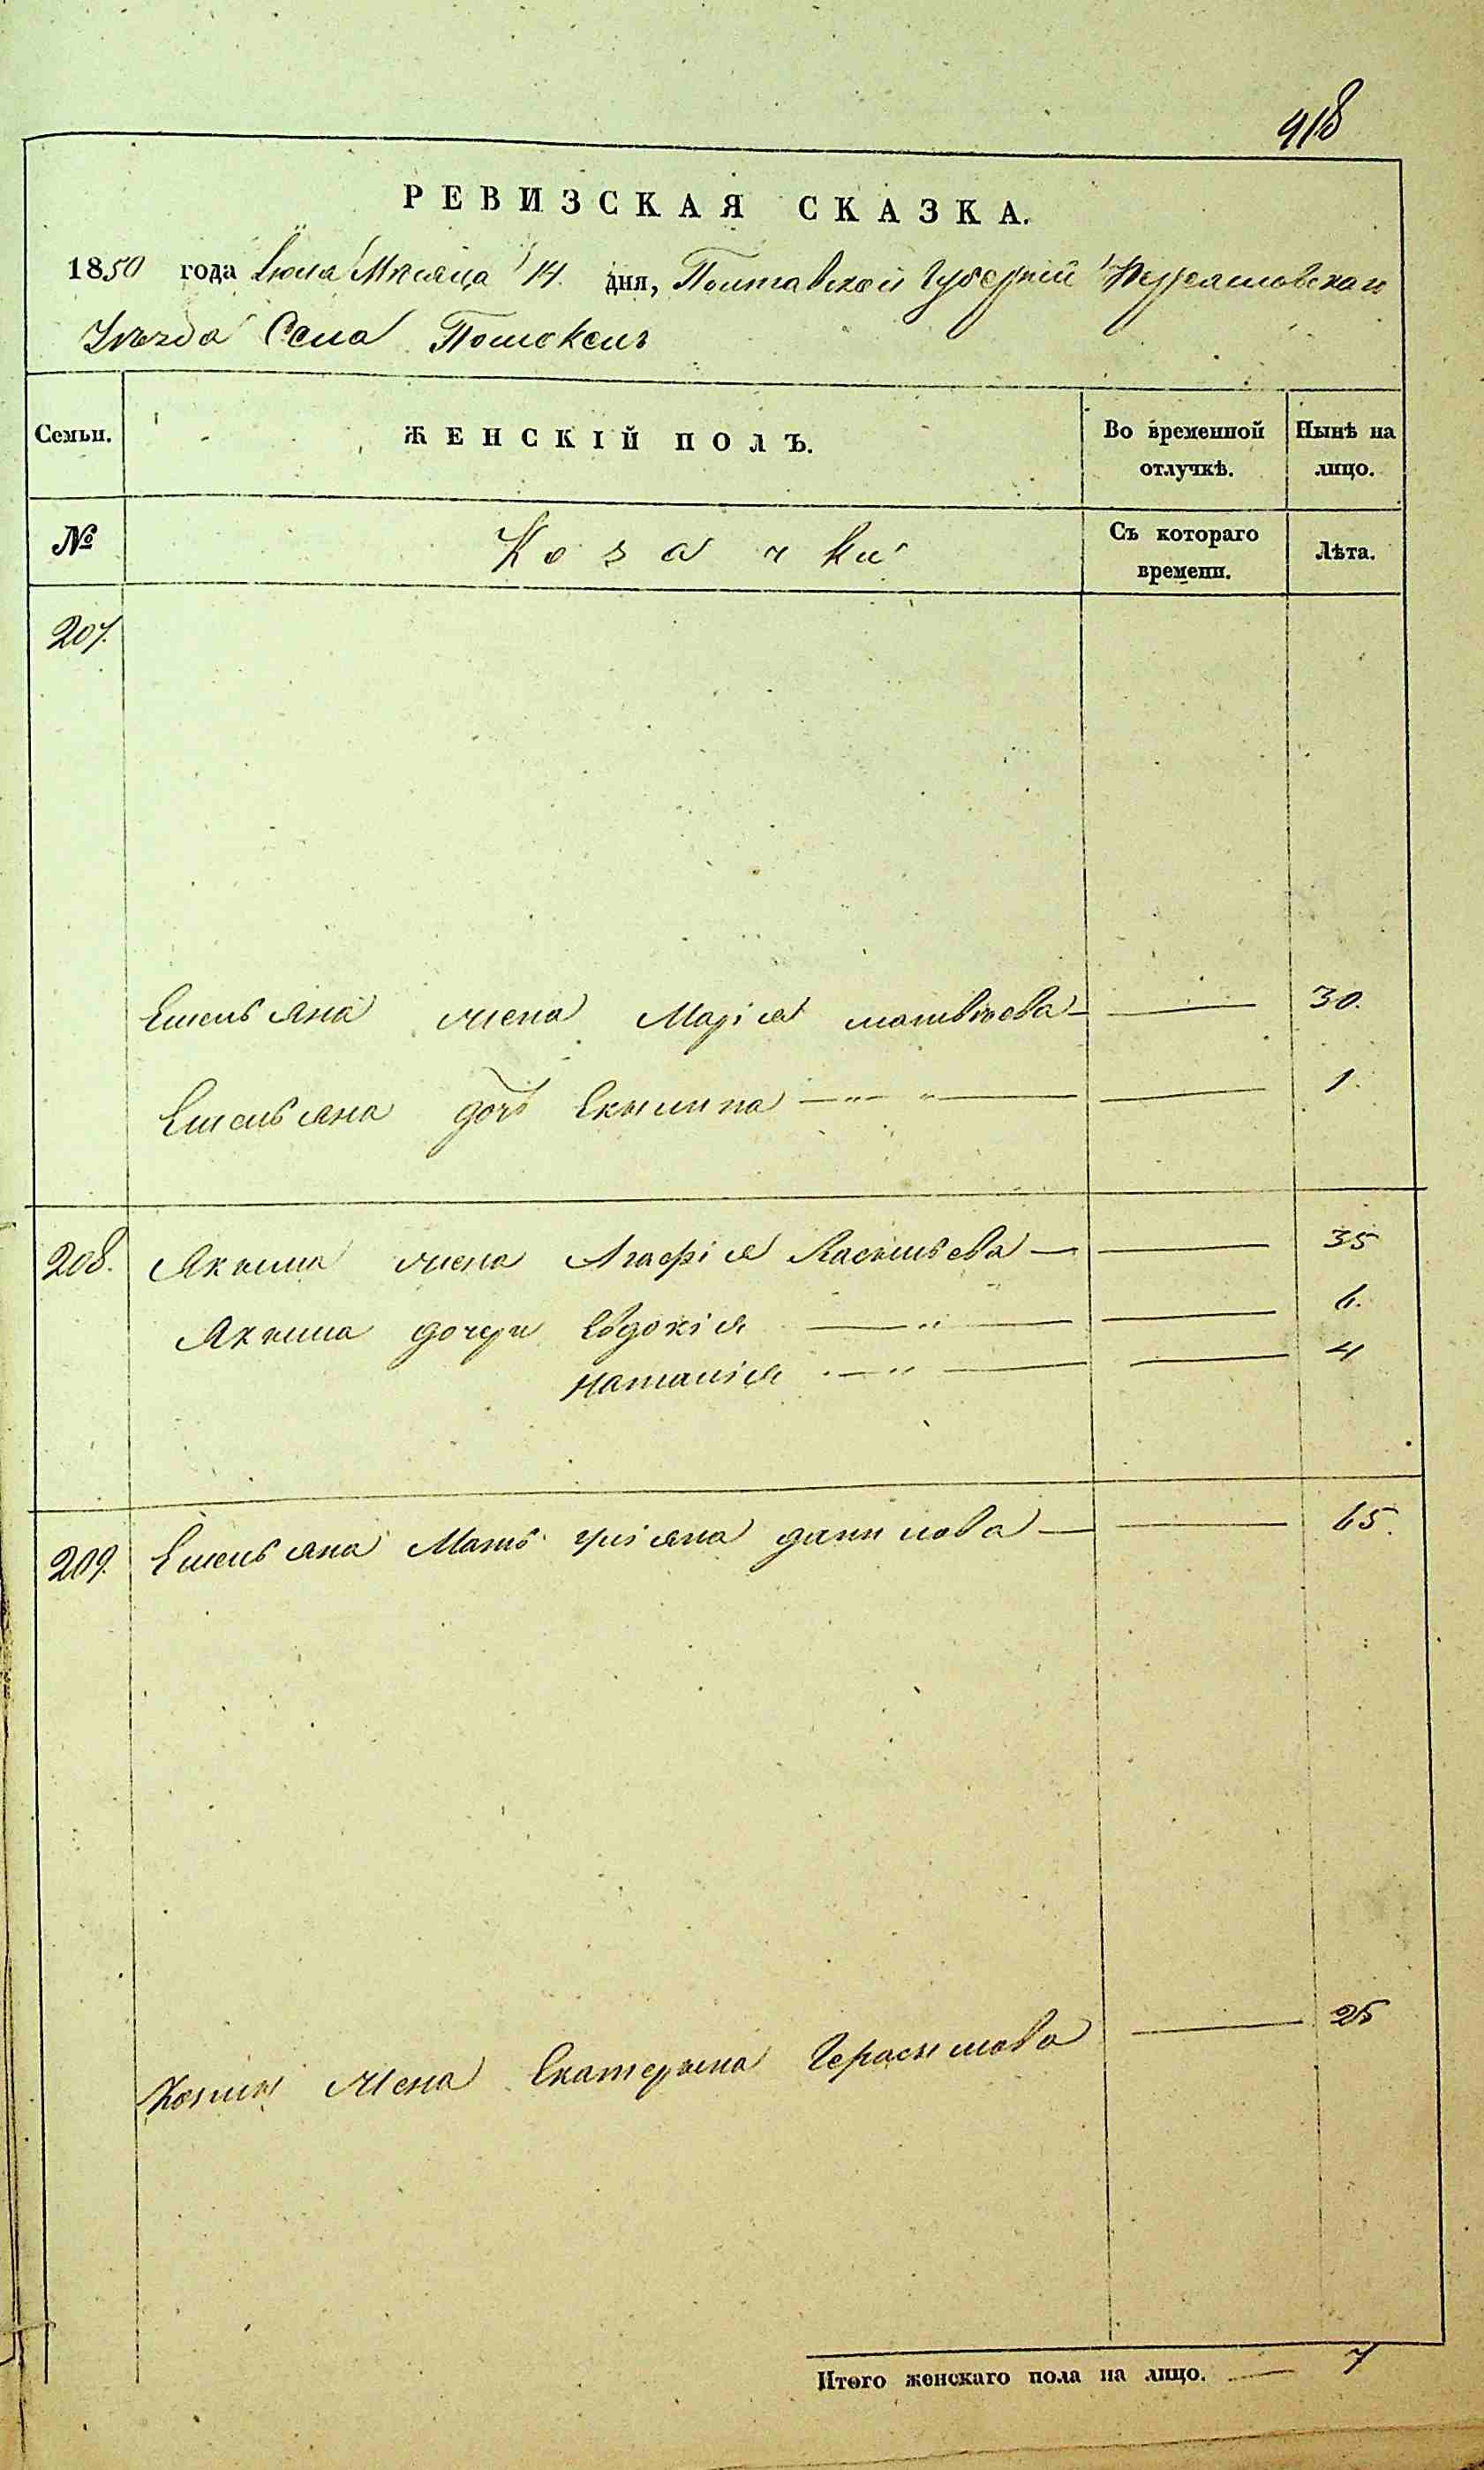 918
РЕВИЗСКАЯ СКАЗКА.
1850 года Июля Мѣсяца 14. дня, Полтавской Губерніи Переяславскаго
Уѣзда Села Помокель
Семьи. ЖЕНСКІЙ ПОЛЪ. Во временной отлучкѣ. Нынѣ на лицо.
№ Козачки Съ котораго времени. Лѣта.
207.
Емельяна жена Марія Матвѣева — 30.
Емельяна дочь Екилина — " " — 1.
208. Якима жена Агафія Васильева — 35
Якима дочери Евдокія — " — 6.
Наталія — " — 4
209. Емельяна Мать Уліяна Данилова — 65.
жена Екатерина Герасимова — 25
Итого женскаго пола на лицо. — 7